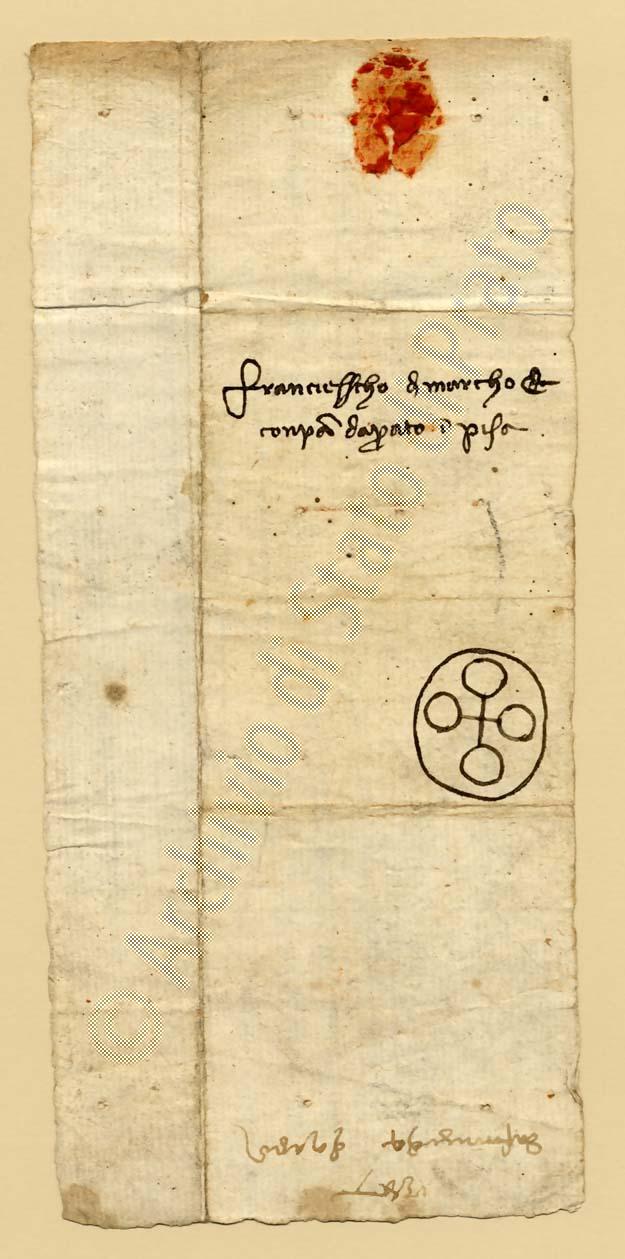 franciesscho di marcho &
conpã da prato ĩ pisa
© Archivio di Stato di Prato